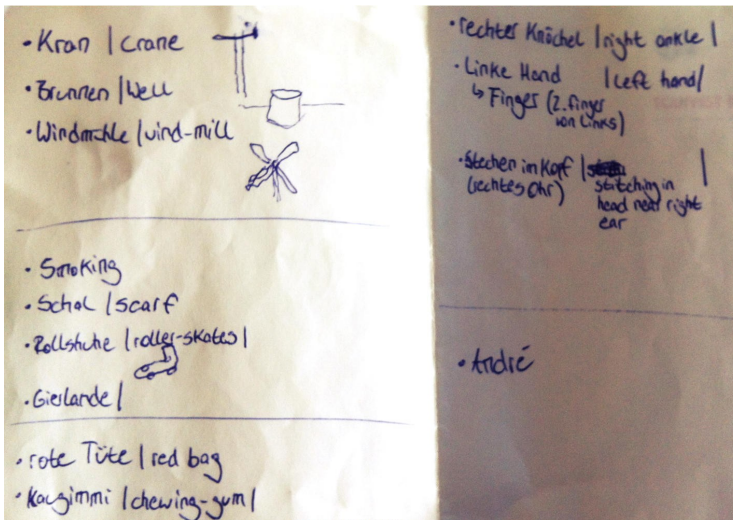 • Kran | crane
• Brunnen | Well
• Windmühle | wind-mill
• Smoking
• Schal | scarf
• Rollshuhe | roller-skates |
• Gierlande |
• rote Tüte | red bag
• Kaugimmi | chewing-gum |
• rechter Knöchel | right ankle |
• Linke Hand | Left hand |
↳ Finger (2. finger
von Links)
• Stechen im Kopf | 
(rechtes Ohr)
stitching in
head near right
ear
• André